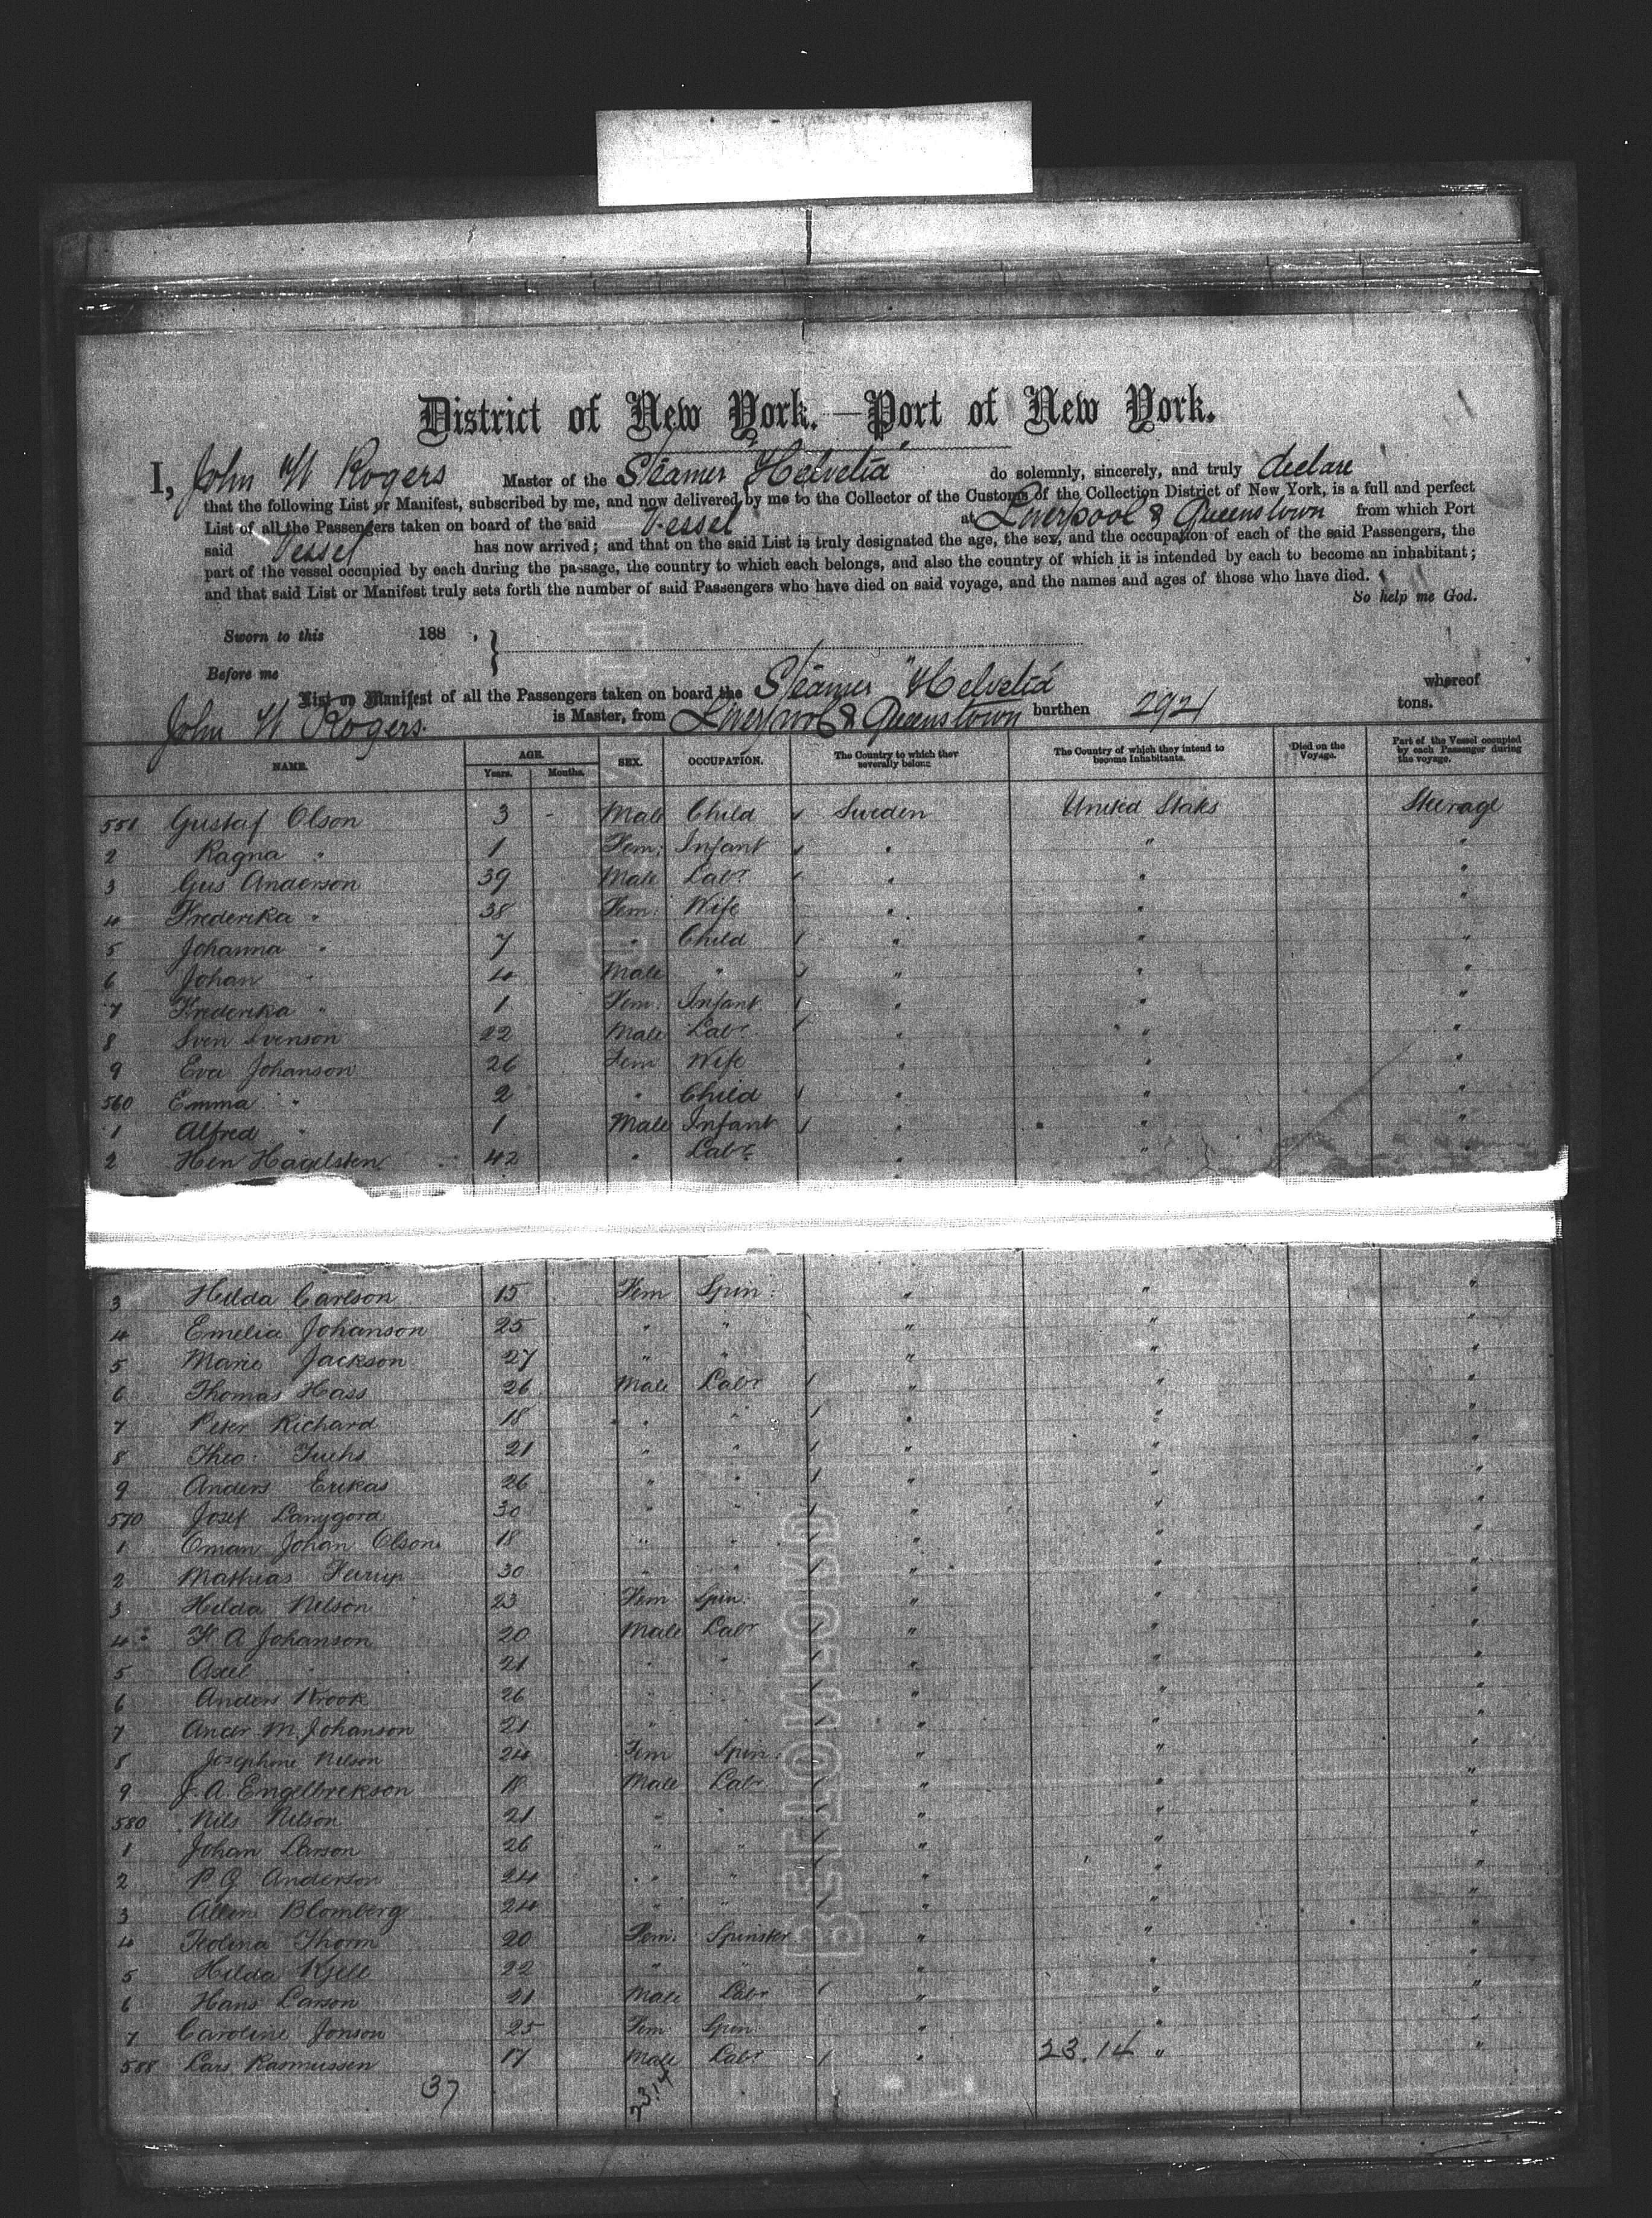 District of New York.—Port of New York.
I, John W Rogers Master of the Steamer "Helvetia" do solemnly, sincerely, and truly declare
that the following List or Manifest, subscribed by me, and now delivered by me to the Collector of the Customs of the Collection District of New York, is a full and perfect
List of all the Passengers taken on board of the said Vessel at Liverpool & Queenstown from which Port
said Vessel has now arrived; and that on the said List is truly designated the age, the sex, and the occupation of each of the said Passengers, the
part of the vessel occupied by each during the passage, the country to which each belongs, and also the country of which it is intended by each to become an inhabitant;
and that said List or Manifest truly sets forth the number of said Passengers who have died on said voyage, and the names and ages of those who have died.
So help me God.
Sworn to this 188 ,
Before me
List or Manifest of all the Passengers taken on board the Steamer "Helvetia" whereof
John W Rogers. is Master, from Liverpool & Queenstown burthen 2921 tons.
NAME. AGE. Years. Months. SEX. OCCUPATION. The Country to which they severally belong. The Country of which they intend to become Inhabitants. Died on the Voyage. Part of the Vessel occupied by each Passenger during the voyage.
551 Gustaf Olson 3 - Male Child Sweden United States Steerage
2 Ragna " 1 Fem: Infant " " "
3 Gus Anderson 39 Male Labr " " "
4 Frederika " 38 Fem: Wife " " "
5 Johanna " 7 " Child " " "
6 Johan " 4 Male " " " "
7 Frederika " 1 Fem: Infant " " "
8 Sven Svenson 22 Male Labr " " "
9 Eva Johanson 26 Fem Wife " " "
560 Emma " 2 " Child " " "
1 Alfred " 1 Male Infant " " "
2 Hen Hagelsten 42 " Labr " " "
3 Hilda Carlson 15 Fem Spin: " " "
4 Emelia Johanson 25 " " " " "
5 Marie Jackson 27 " " " " "
6 Thomas Hass 26 Male Labr " " "
7 Peter Richard 18 " " " " "
8 Theo: Fuchs 21 " " " " "
9 Anders Erikas 26 " " " " "
570 Josef Lanygord 30 " " " " "
1 Oman Johan Olson 18 " " " " "
2 Mathias 30 " " " " "
3 Hilda Nelson 23 Fem Spin. " " "
4 F. A Johanson 20 Male Labr " " "
5 Axel " 21 " " " " "
6 Anders Krook 26 " " " " "
7 Ander M. Johanson 21 " " " " "
8 Josephine Nelson 24 Fem Spin: " " "
9 J. A. Engelbrekson 18 Male Labr " " "
580 Nils Nilson 21 " " " " "
1 Johan Larson 26 " " " " "
2 P. G Anderson 24 " " " " "
3 Blomberg 24 " " " " "
4 Thorm 20 Fem: Spinster " " "
5 Hilda Kjell 22 " " " " "
6 Hans Larson 21 Male Labr " " "
7 Caroline Jonson 25 Fem Spin " " "
588 Lars Rasmussen 17 Male Labr " 23.14 " "
37 23.14